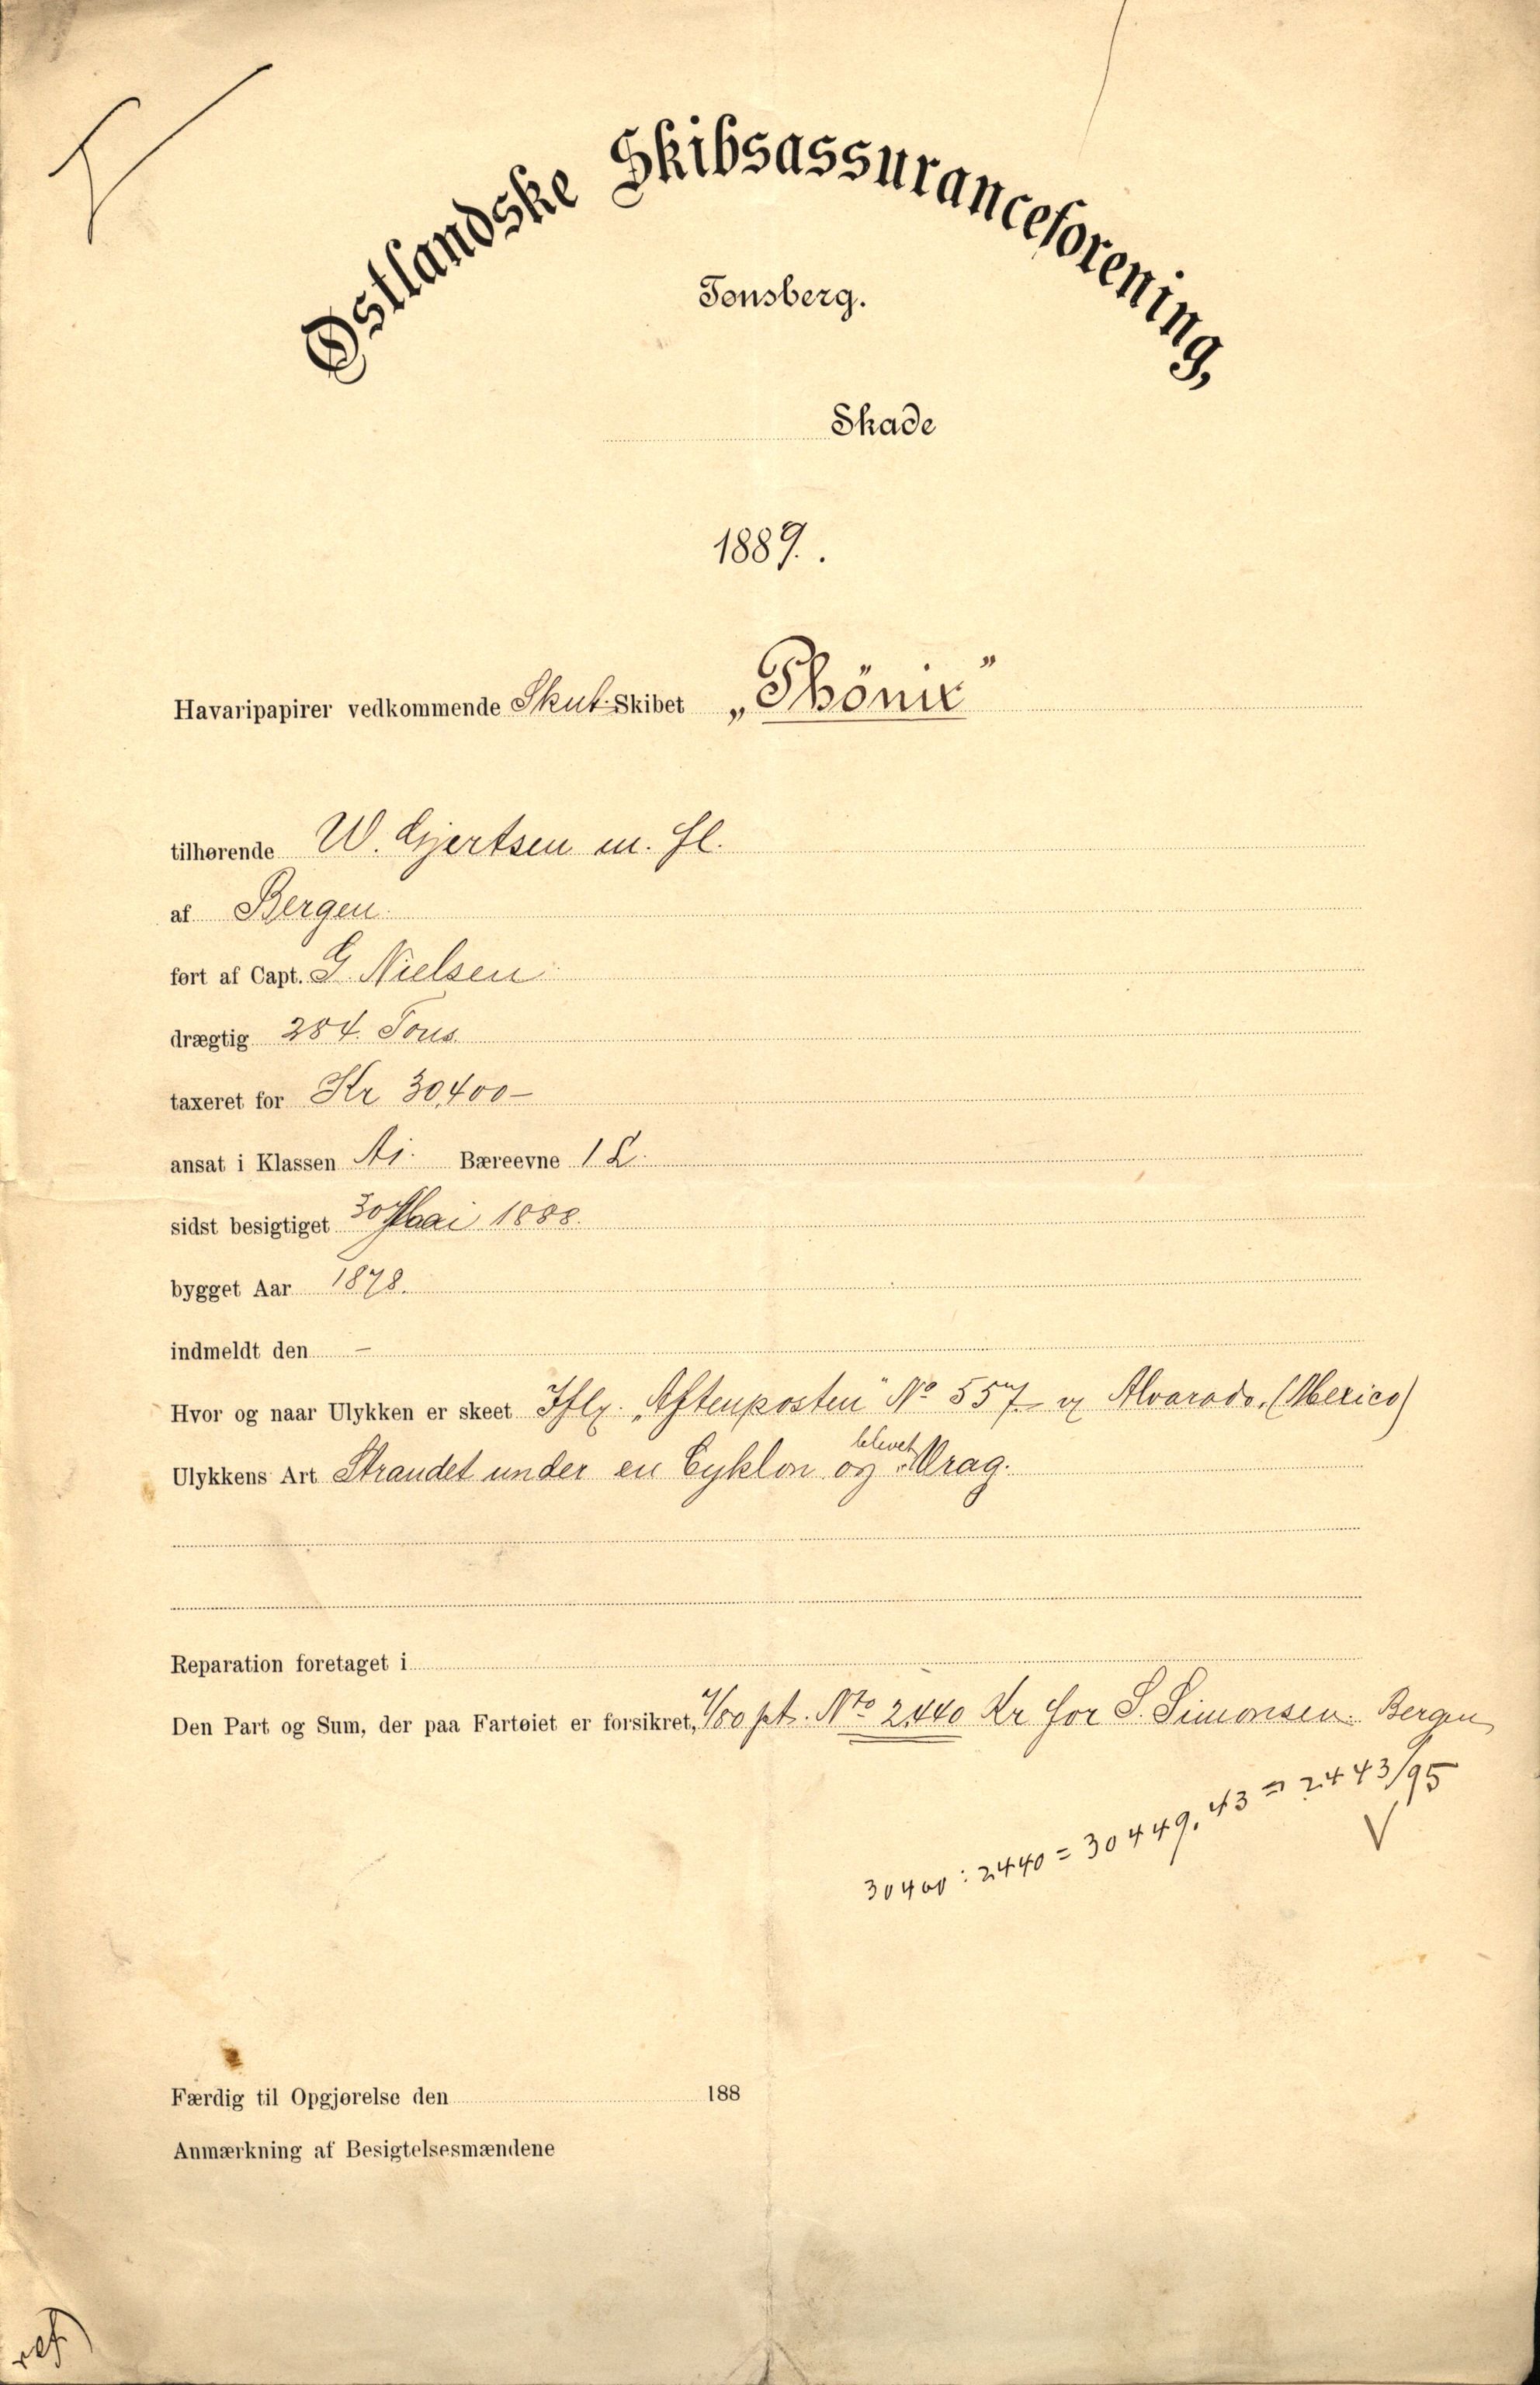 Østlandske Skibsassuranceforening,
Tønsberg.
Skade
1889.
Havaripapirer vedkommende Skut Skibet „Phönix"
tilhørende W. Gjertsen m. fl.
af Bergen
ført af Capt. G. Nielsen
drægtig 284. Tons
taxeret for Kr 30,400 –
ansat i Klassen A1. Bæreevne 1 L
sidst besigtiget 30 Mai 1888.
bygget Aar 1878.
indmeldt den –
Hvor og naar Ulykken er skeet Iflg. „Aftenposten" No 557 v/ Alvarado. (Mexico)
Ulykkens Art Strandet under en Cyklon og blevet Vrag.
Reparation foretaget i
Den Part og Sum, der paa Fartøiet er forsikret, /80 pt. Nto 2440 Kr for S. Simonsen. Bergen
30400 : 2440 = 30449,43 = 2443/95
Færdig til Opgjørelse den 188
Anmærkning af Besigtelsesmændene